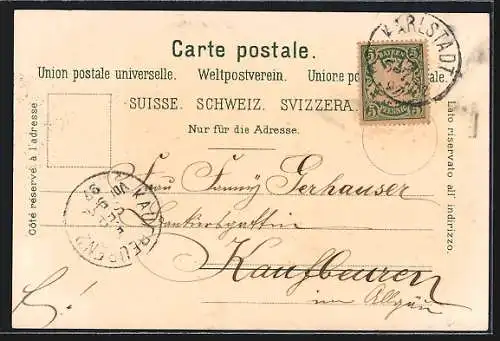 KARLSTADT
Carte postale.
BAYERN
5 5
5 PFENNIG 5
Union postale universelle. Weltpostverein. Unione postale
SUISSE. SCHWEIZ. SVIZZERA.
Nur für die Adresse.
Côté réservé à l'adresse
Lato riservato all' indirizzo.
Frau Fanny Gerhauser
KAUFBEUREN
Kaufbeuren
im Allgäu